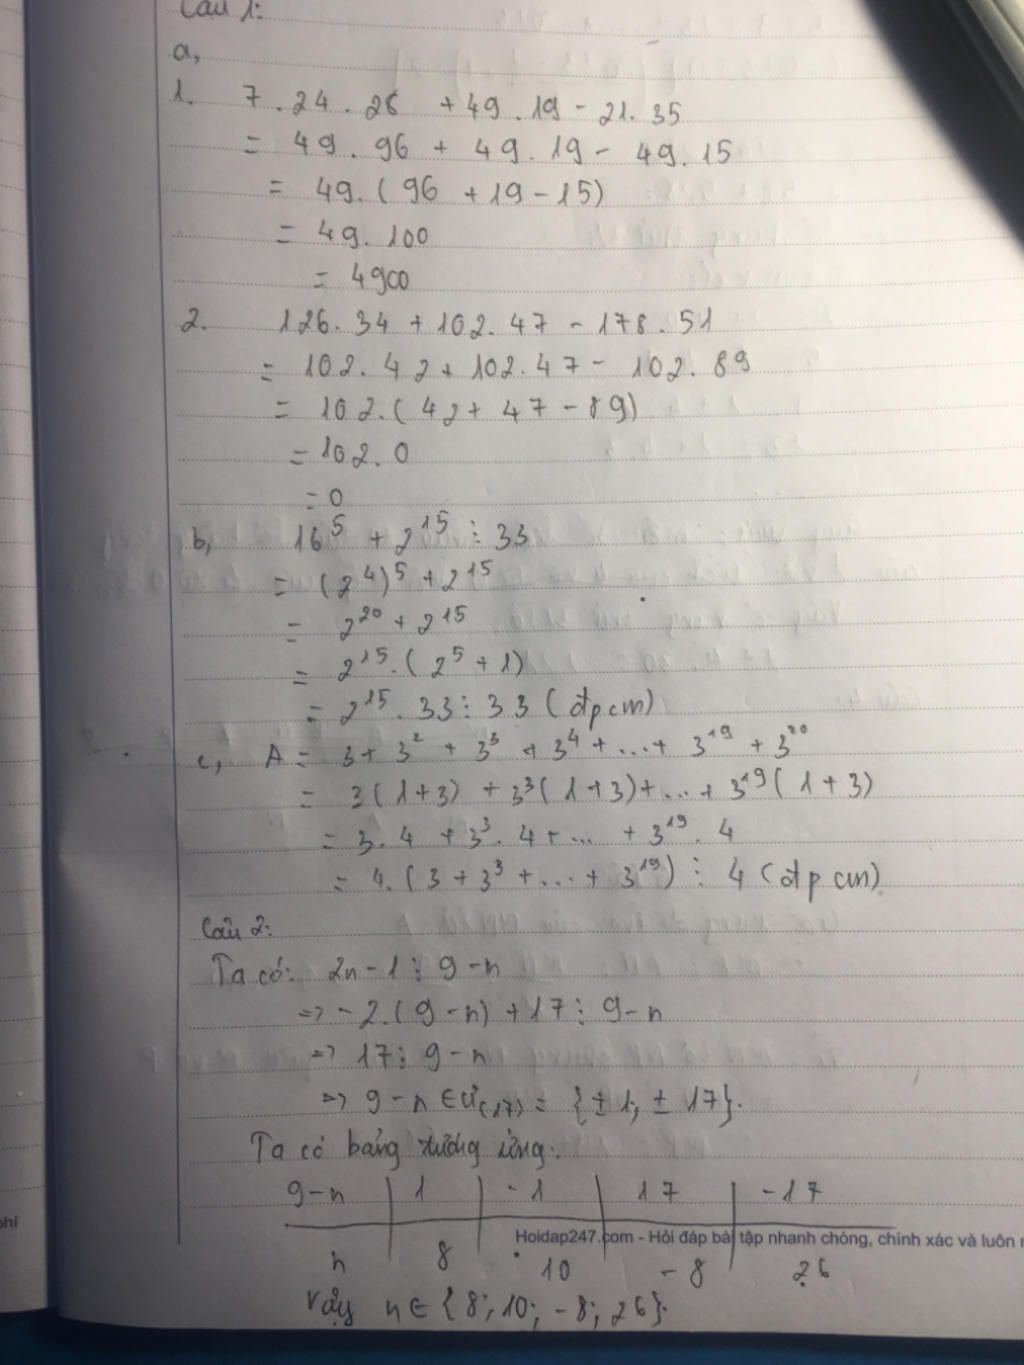 Câu 1:
a,
1. 7.24.28 + 49.19 - 21.35
= 49.96 + 49.19 - 49.15
= 49.(96 + 19 - 15)
= 49.100
= 4900
2. 126.34 + 102.47 - 178.51
= 102.42 + 102.47 - 102.89
= 102.(42 + 47 - 89)
= 102.0
= 0
b, 16⁵ + 2¹⁵ ⋮ 33
= (2⁴)⁵ + 2¹⁵
= 2²⁰ + 2¹⁵
= 2¹⁵.(2⁵ + 1)
= 2¹⁵.33 ⋮ 33 (đpcm)
c, A = 3 + 3² + 3³ + 3⁴ + ... + 3¹⁹ + 3²⁰
= 3(1+3) + 3³(1+3) + ... + 3¹⁹(1+3)
= 3.4 + 3³.4 + ... + 3¹⁹.4
= 4.(3 + 3³ + ... + 3¹⁹) ⋮ 4 (đpcm)
Câu 2:
Ta có: 2n - 1 ⋮ 9 - n
=> -2.(9 - n) + 17 ⋮ 9 - n
=> 17 ⋮ 9 - n
=> 9 - n ∈ Ư(17) = {±1; ±17}.
Ta có bảng tương ứng:
9-n | 1 | -1 | 17 | -17
phí
Hoidap247.com - Hỏi đáp bài tập nhanh chóng, chính xác và luôn
n | 8 | 10 | -8 | 26
Vậy n ∈ {8; 10; -8; 26}.